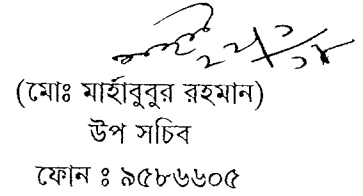 (মোঃ মার্হাবুবুর রহমান)
উপ সচিব
ফোন ঃ ৯৫৮৬৬০৫